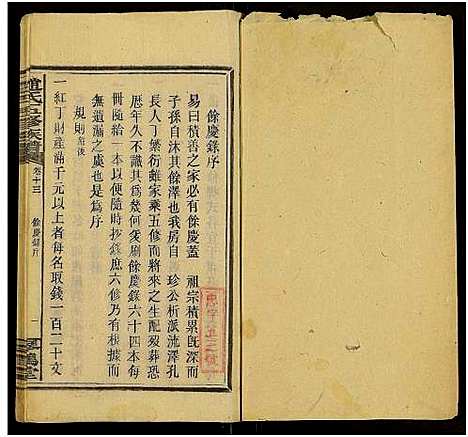 餘慶錄序
易曰積善之家必有餘慶蓋　祖宗積累旣深而
子孫自沐其餘澤也我房自　珍公析派流澤孔
長人丁繁衍雖家乗五修而將來之生配歿葬恐
歷年久不識其爲幾何爰刷餘慶錄六十四本每
冊隨給一本以便隨時抄錄庶六修乃有根據而
無遺漏之虞也是爲序
規則左後
一紅丁財產滿千元以上者每名取錢一百二十文
氏五修族譜
卷十三
餘慶錄序
一
堂